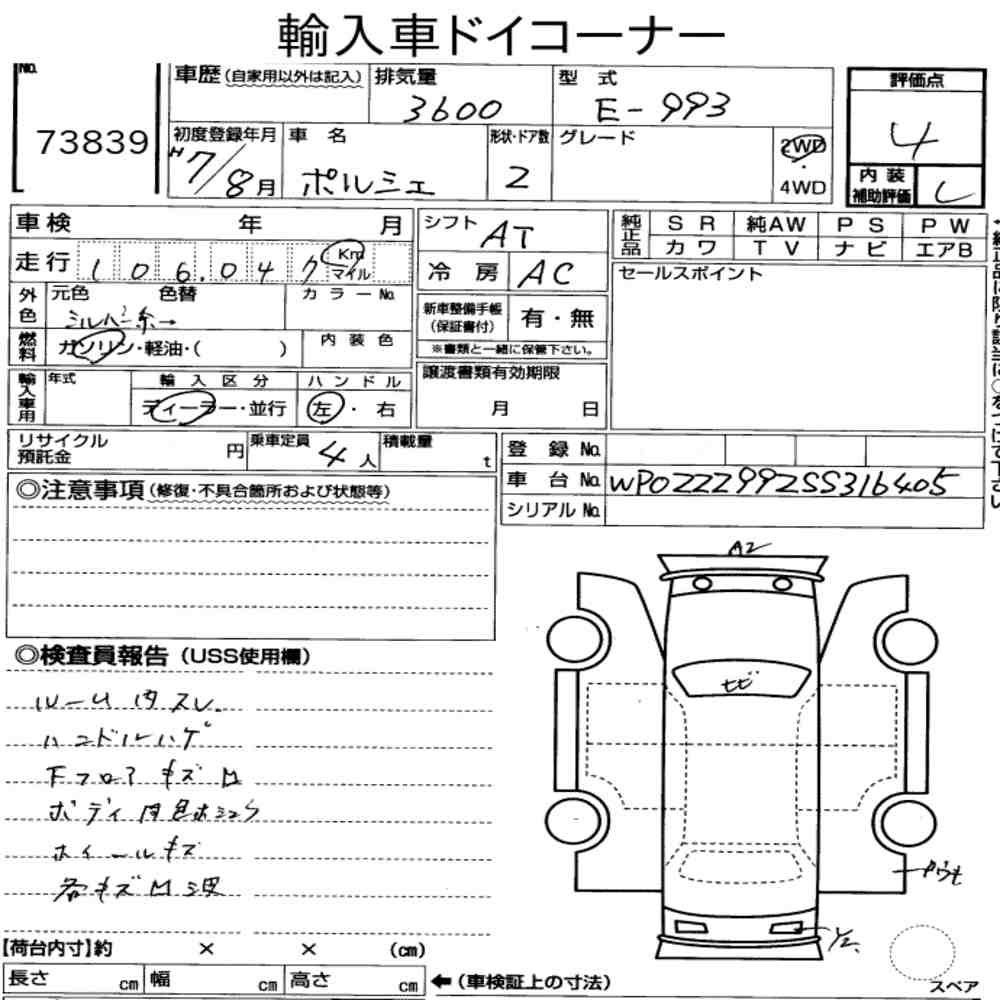 輸入車ドイコーナー
No.
73839
車歴 (自家用以外は記入)
排気量
3600
型式
E-993
初度登録年月
H7/8月
車名
ポルシェ
形状・ドア数
2
グレード
2WD
・
4WD
評価点
4
内装
補助評価
C
車検 年 月
走行 106.047 Km
マイル
外色
元色 色替
シルバー系→
カラーNo.
燃料
ガソリン・軽油・( )
内装色
輸入車用
年式
輸入区分
ディーラー・並行
ハンドル
左・右
シフト
AT
冷房
AC
新車整備手帳
(保証書付)
有・無
※書類と一緒に保管下さい。
譲渡書類有効期限
月 日
純正品
SR 純AW PS PW
カワ TV ナビ エアB
セールスポイント
リサイクル
預託金
円
乗車定員
4人
積載量
t
登録No.
車台No. WP0ZZZ99ZSS316405
シリアルNo.
◎注意事項(修復・不具合箇所および状態等)
◎検査員報告(USS使用欄)
ルーム内スレ.
ハンドルハゲ
下フロアキズ凹
ボディ内色
ホイールキズ
各キズ凹
A2
トビ
Y2.
【荷台内寸】約 × × (cm)
長さ cm 幅 cm 高さ cm
←(車検証上の寸法)
スペア